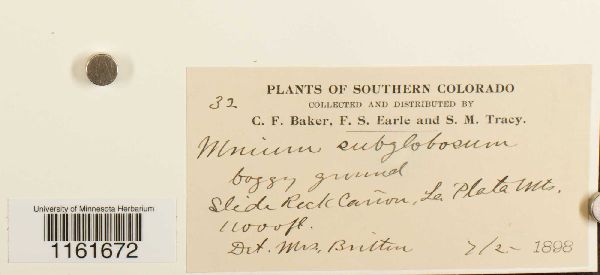 PLANTS OF SOUTHERN COLORADO
32
COLLECTED AND DISTRIBUTED BY
C. F. Baker, F. S. Earle and S. M. Tracy.
Mnium subglobosum
boggy ground
Slide Rock Cañon, La Plata Mts.
11000ft.
Det. Mrs, Britton 7/2- 1898
University of Minnesota Herbarium
1161672